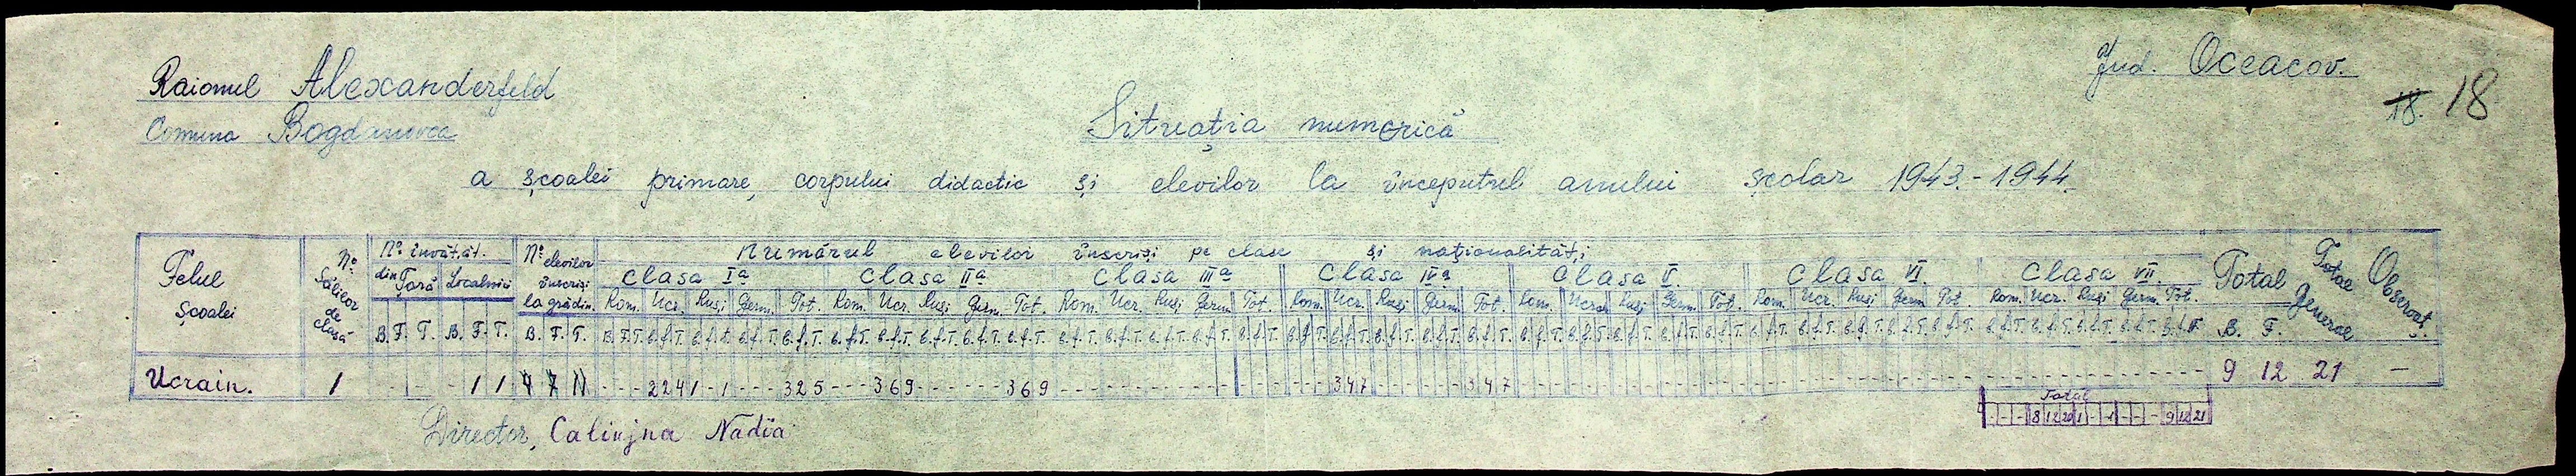 Jud. Oceacov.
Raionul Alexanderfeld
18. 18
Comuna Bogdanovca
Situația numerică
a școalei primare, corpului didactic și elevilor la începutul anului școlar 1943-1944.
Felul școalei No Sălilor de clasă No învățăt. din Țară Localnici No elevilor înscriși la grădin. Numărul elevilor înscriși pe clase și naționalități Total Total General Observaț.
Clasa Iª Clasa IIª Clasa IIIª Clasa IVª Clasa V. Clasa VI. Clasa VII.
Rom. Ucr. Ruși Germ. Tot. Rom. Ucr. Ruși Germ. Tot. Rom. Ucr. Ruși Germ. Tot. Rom. Ucr. Ruși Germ. Tot. Rom. Ucr. Ruși Germ. Tot. Rom. Ucr. Ruși Germ. Tot. Rom. Ucr. Ruși Germ. Tot.
B. F. T. B. F. T. B. F. T. B. F. T. B. f. T. B. f. T. B. f. T. B. f. T. B. f. T. B. f. T. B. f. T. B. f. T. B. f. T. B. f. T. B. f. T. B. f. T. B. f. T. B. f. T. B. f. T. B. f. T. B. f. T. B. f. T. B. f. T. B. f. T. B. f. T. B. f. T. B. f. T. B. f. T. B. f. T. B. f. T. B. f. T. B. f. T. B. f. T. B. f. T. B. f. T. B. f. T. B. f. T. B. F.
Ucrain. 1 - - - - 1 1 4 7 11 - - - 2 2 4 1 - 1 - - - 3 2 5 - - - 3 6 9 - - - - - - 3 6 9 - - - - - - - - - - - - - - - - - - 3 4 7 - - - - - - 3 4 7 - - - - - - - - - - - - - - - - - - - - - - - - - - - - - - - - - - - - - - - - - - - - - 9 12 21 -
Total
- - - 8 12 20 1 - 1 - - - 9 12 21
Director, Calinjna Nadia